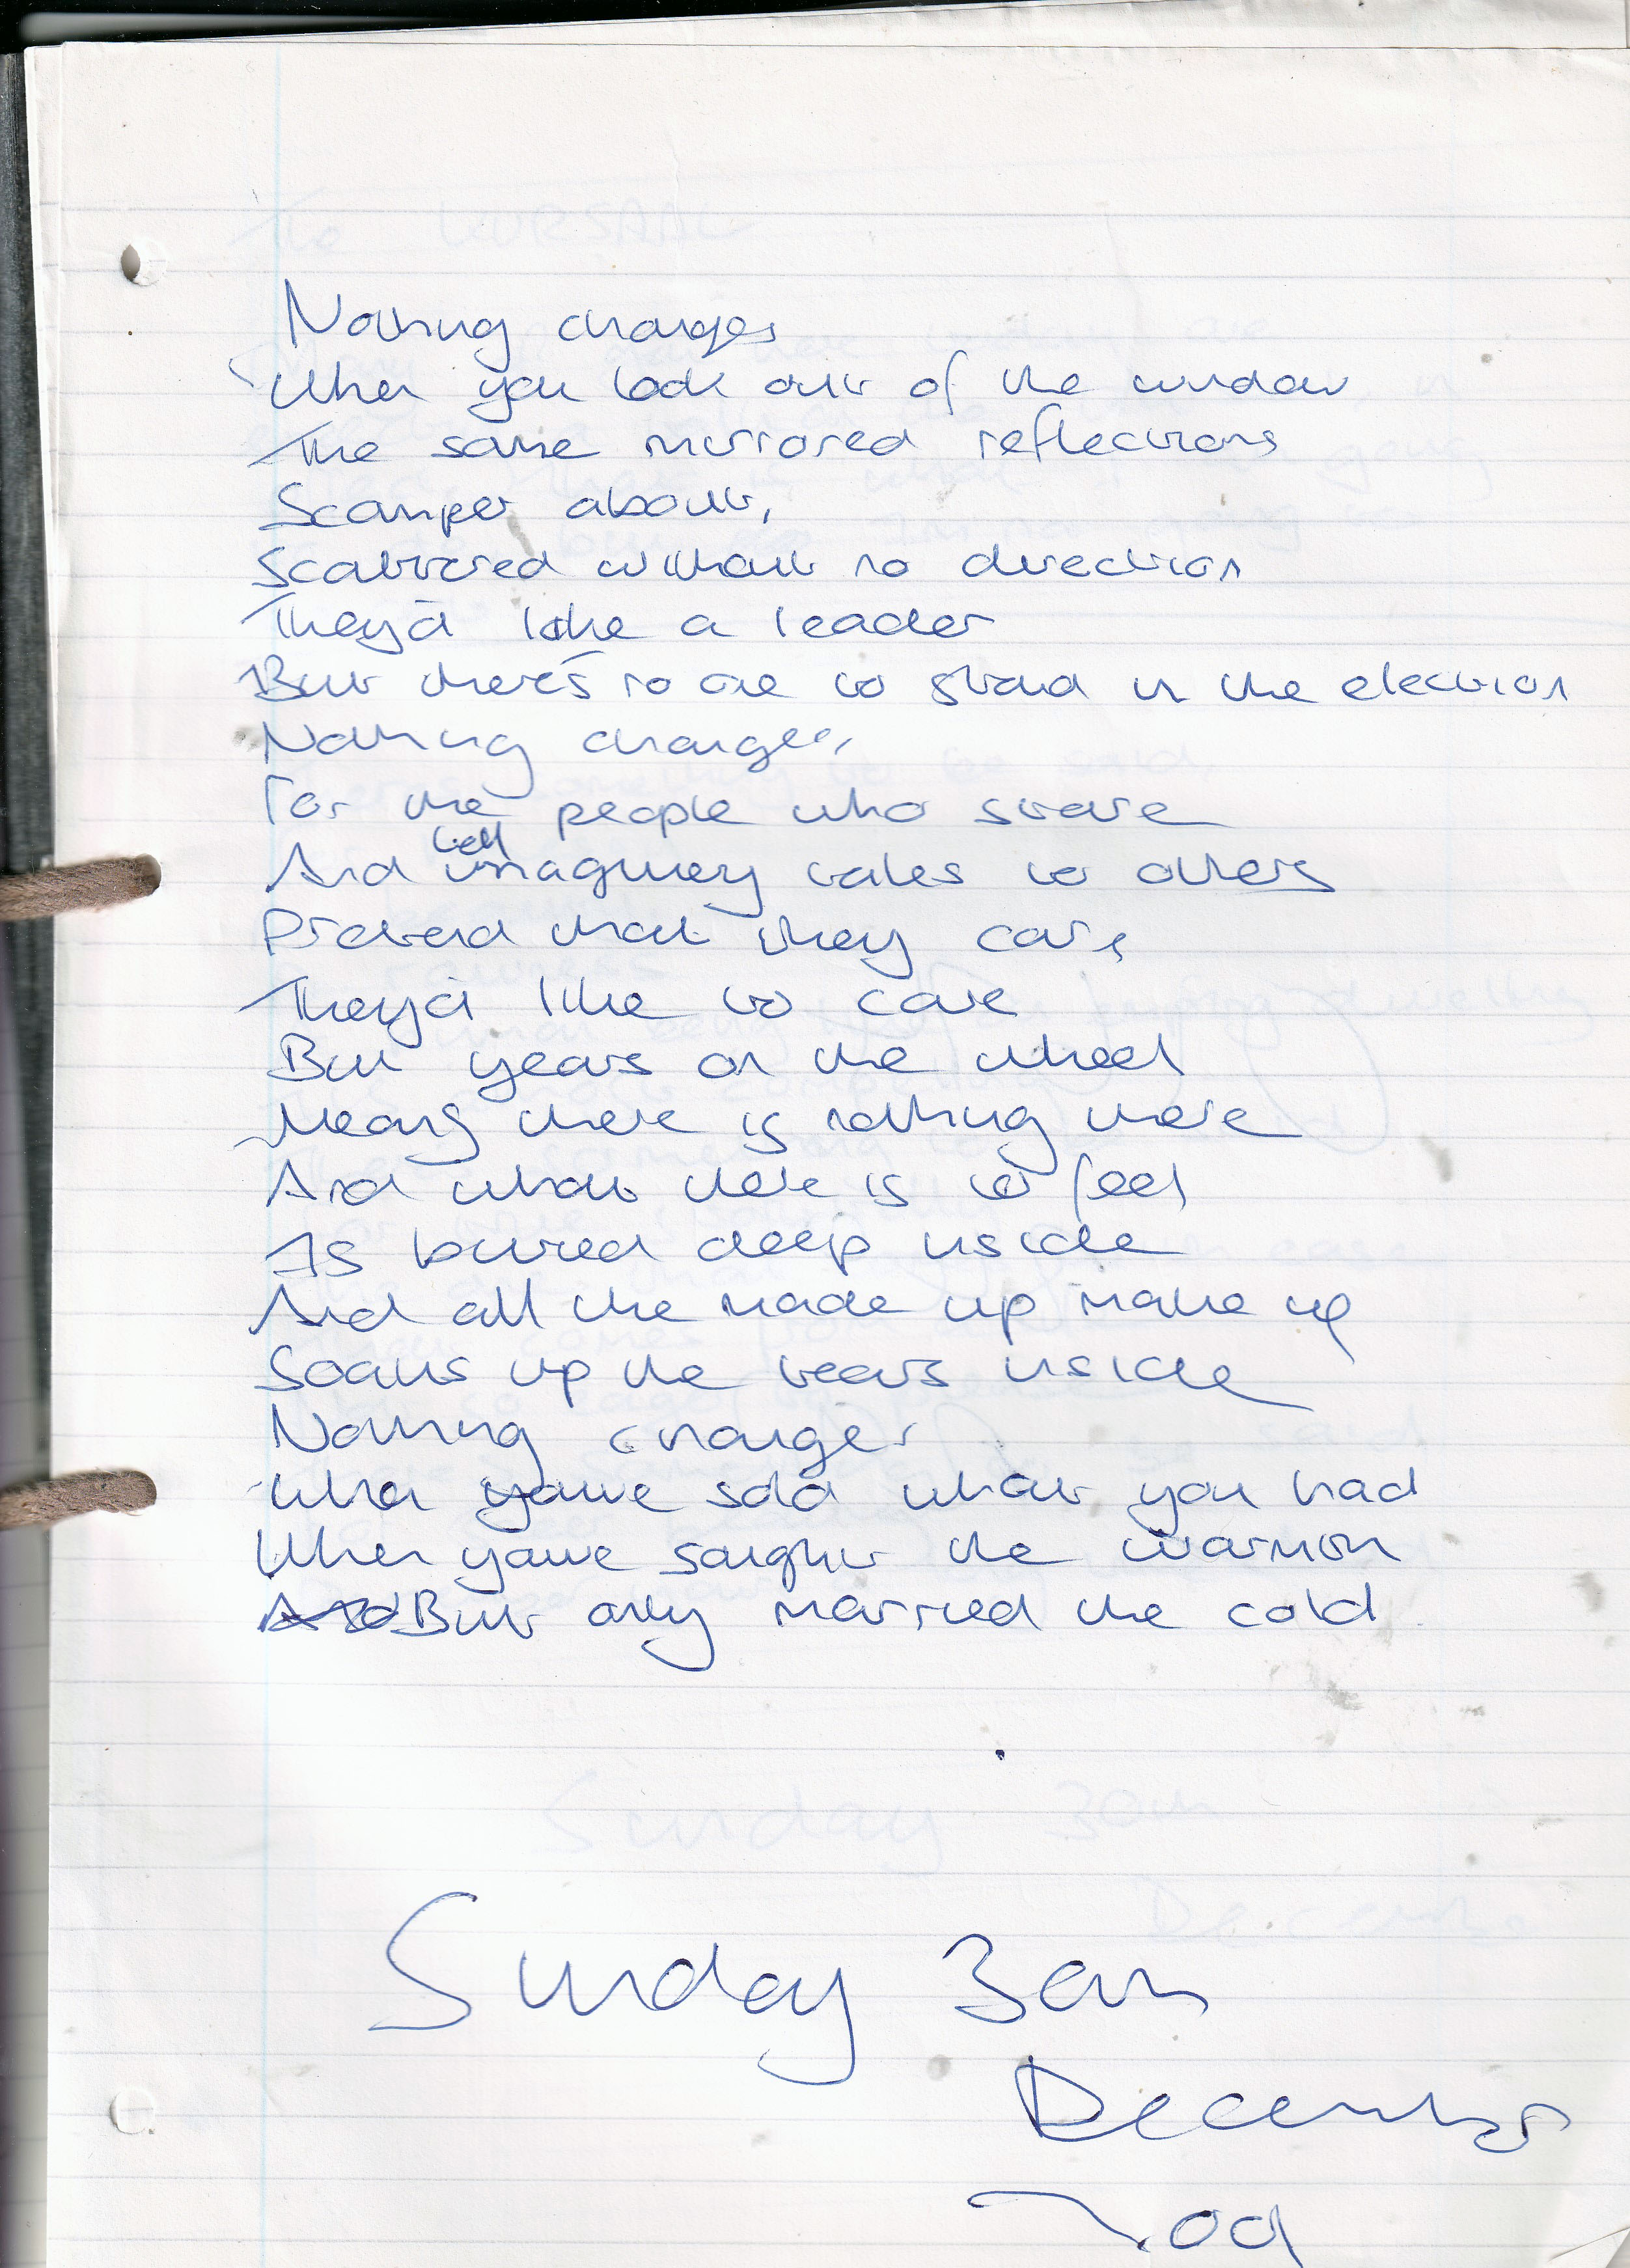 Nothing changes
When you look out of the window
The same mirrored reflections
Scamper about,
Scattered without no direction
They'd like a leader
But there's no one to stand in the election
Nothing changes,
For the people who stare
And tell imaginary tales to others
Pretend that they care,
They'd like to care
But years on the wheel
Means there is nothing there
And what there is to feel
Is buried deep inside
And all the made up make up
Soaks up the tears inside
Nothing changes
When you've sold what you had
When you've sought the warmth
But only married the cold
Sunday 30th
December